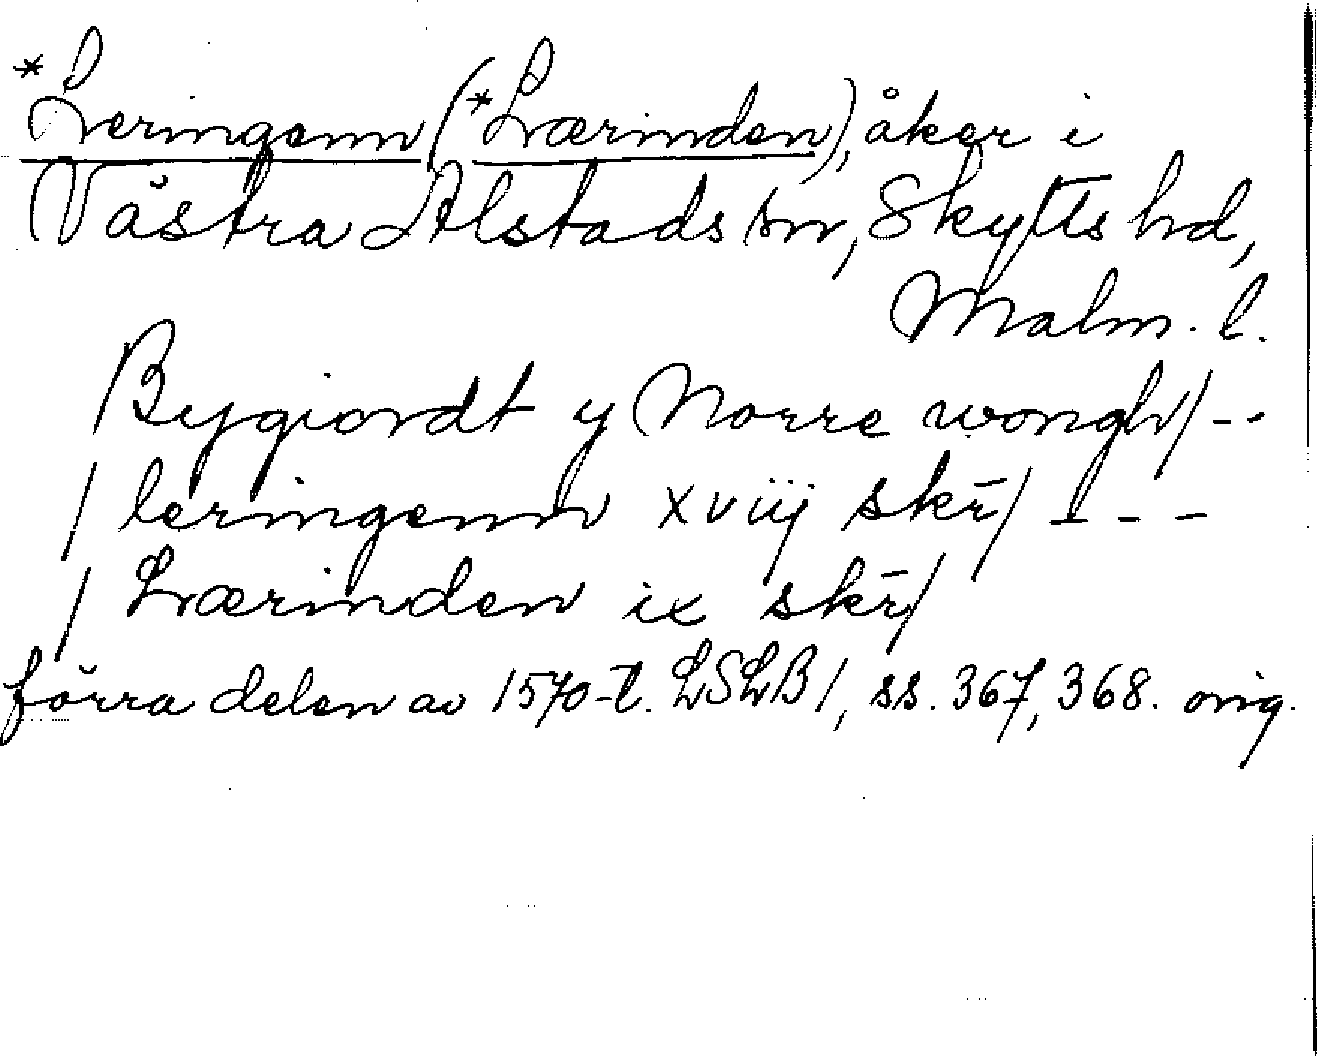 *Leringenn (*Lærinden), åker i
Västra Alstads sn, Skytts hd,
Malm. l.
Bygiordt y Norre wongh/--
/ leringenn xviij skr̄/ - - -
/ Lærinden ix skr̄/
förra delen av 1570-t. LSLB 1, ss. 367, 368. orig.